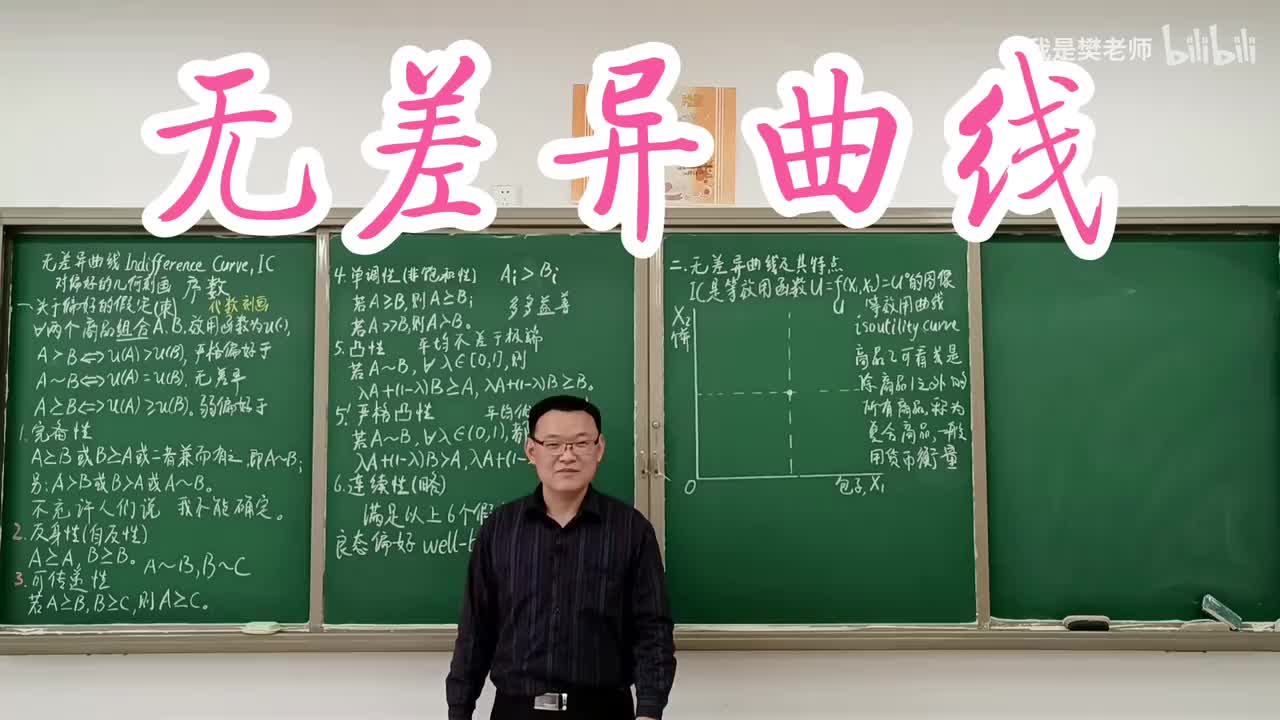 我是樊老师 bilibili
无差异曲线
无差异曲线 Indifference Curve, IC
对偏好的几何刻画 序数
一、关于偏好的假定(束) 代数刻画
∀两个商品组合A.B.效用函数为u(·),
A>B⇔u(A)>u(B),严格偏好于
A～B⇔u(A)=u(B),无差异
A≥B⇔u(A)≥u(B).弱偏好于
1.完备性
A≥B或B≥A或二者兼而有之,即A～B,
另:A>B或B>A或A～B。
不允许人们说 我不能确定。
2.反身性(自反性)
A≥A,B≥B。 A～B,B～C
3.可传递性
若A≥B,B≥C,则A≥C。
4.单调性(非饱和性) Ai>Bi
若A≥B,则A≥Bi 多多益善
若A>>B,则A>B。
5.凸性 平均不差于极端
若A～B,∀λ∈[0,1],则
λA+(1-λ)B≥A,λA+(1-λ)B≥B。
5'.严格凸性 平均
若A～B,∀λ∈(0,1),都
λA+(1-λ)B>A,λA+(1-
6.连续性(略)
满足以上6个假
良态偏好 well-b
二.无差异曲线及其特点
IC是等效用函数U=f(X₁,X₂)=U⁰的图像
U 等效用曲线
isoutility curve
X₂
饼
商品2可看成是
除商品1之外的
所有商品,称为
复合商品,一般
用货币衡量
O 包子,X₁